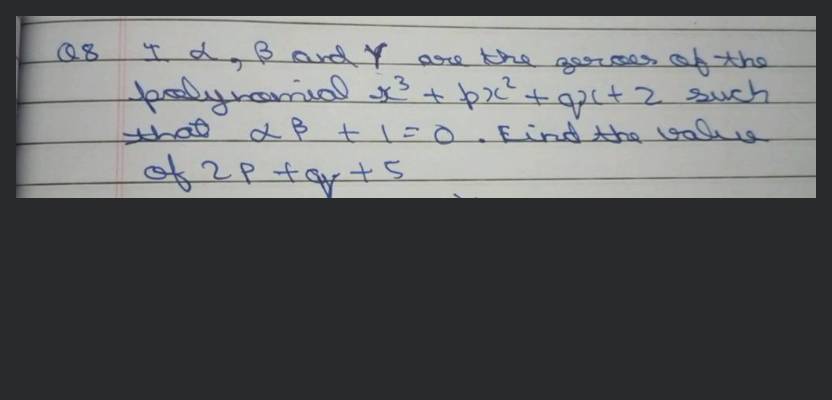 Q8 I α, β and γ are the zeroes of the
polynomial x³ + px² + qx + 2 such
that αβ + 1 = 0 . Find the value
of 2p + q + 5